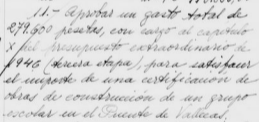 11.- Aprobar un gasto total de
279.600 pesetas, con cargo al capítulo
X del presupuesto extraordinario de
1946 (tercera etapa), para satisfacer
el importe de una certificación de
obras de construcción de un grupo
escolar en el Puente de Vallecas.